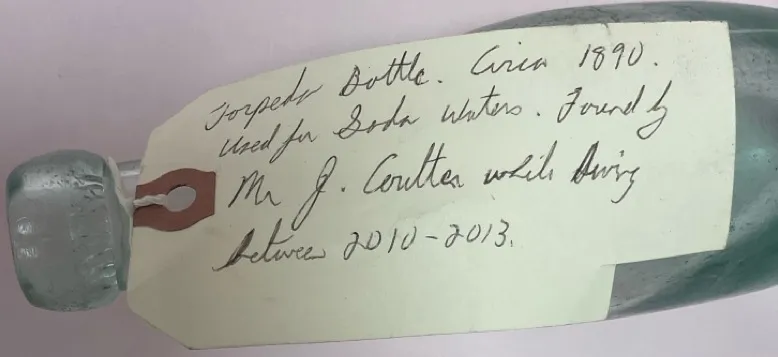 Torpedo Bottle. Circa 1890.
Used for Soda Waters. Found by
Mr J. Coulter while Diving
between 2010-2013.